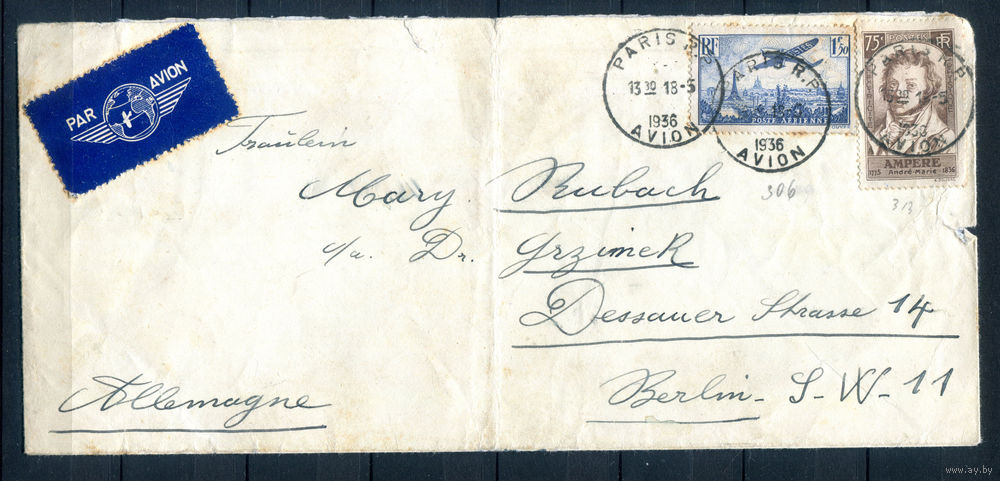 PAR AVION
PARIS R.P.
13 30 18-5
1936
AVION
RF
1F50
POSTES
POSTE AÉRIENNE
PARIS R.P.
1936
AVION
75c POSTES RF
PARIS R.P.
AVION
AMPERE
1775 André-Marie 1836
306
313
Fräulein
Mary Rubach
c/o. Dr. Grzimek
Dessauer Strasse 14
Berlin - S-W-11
Allemagne
www.ay.by